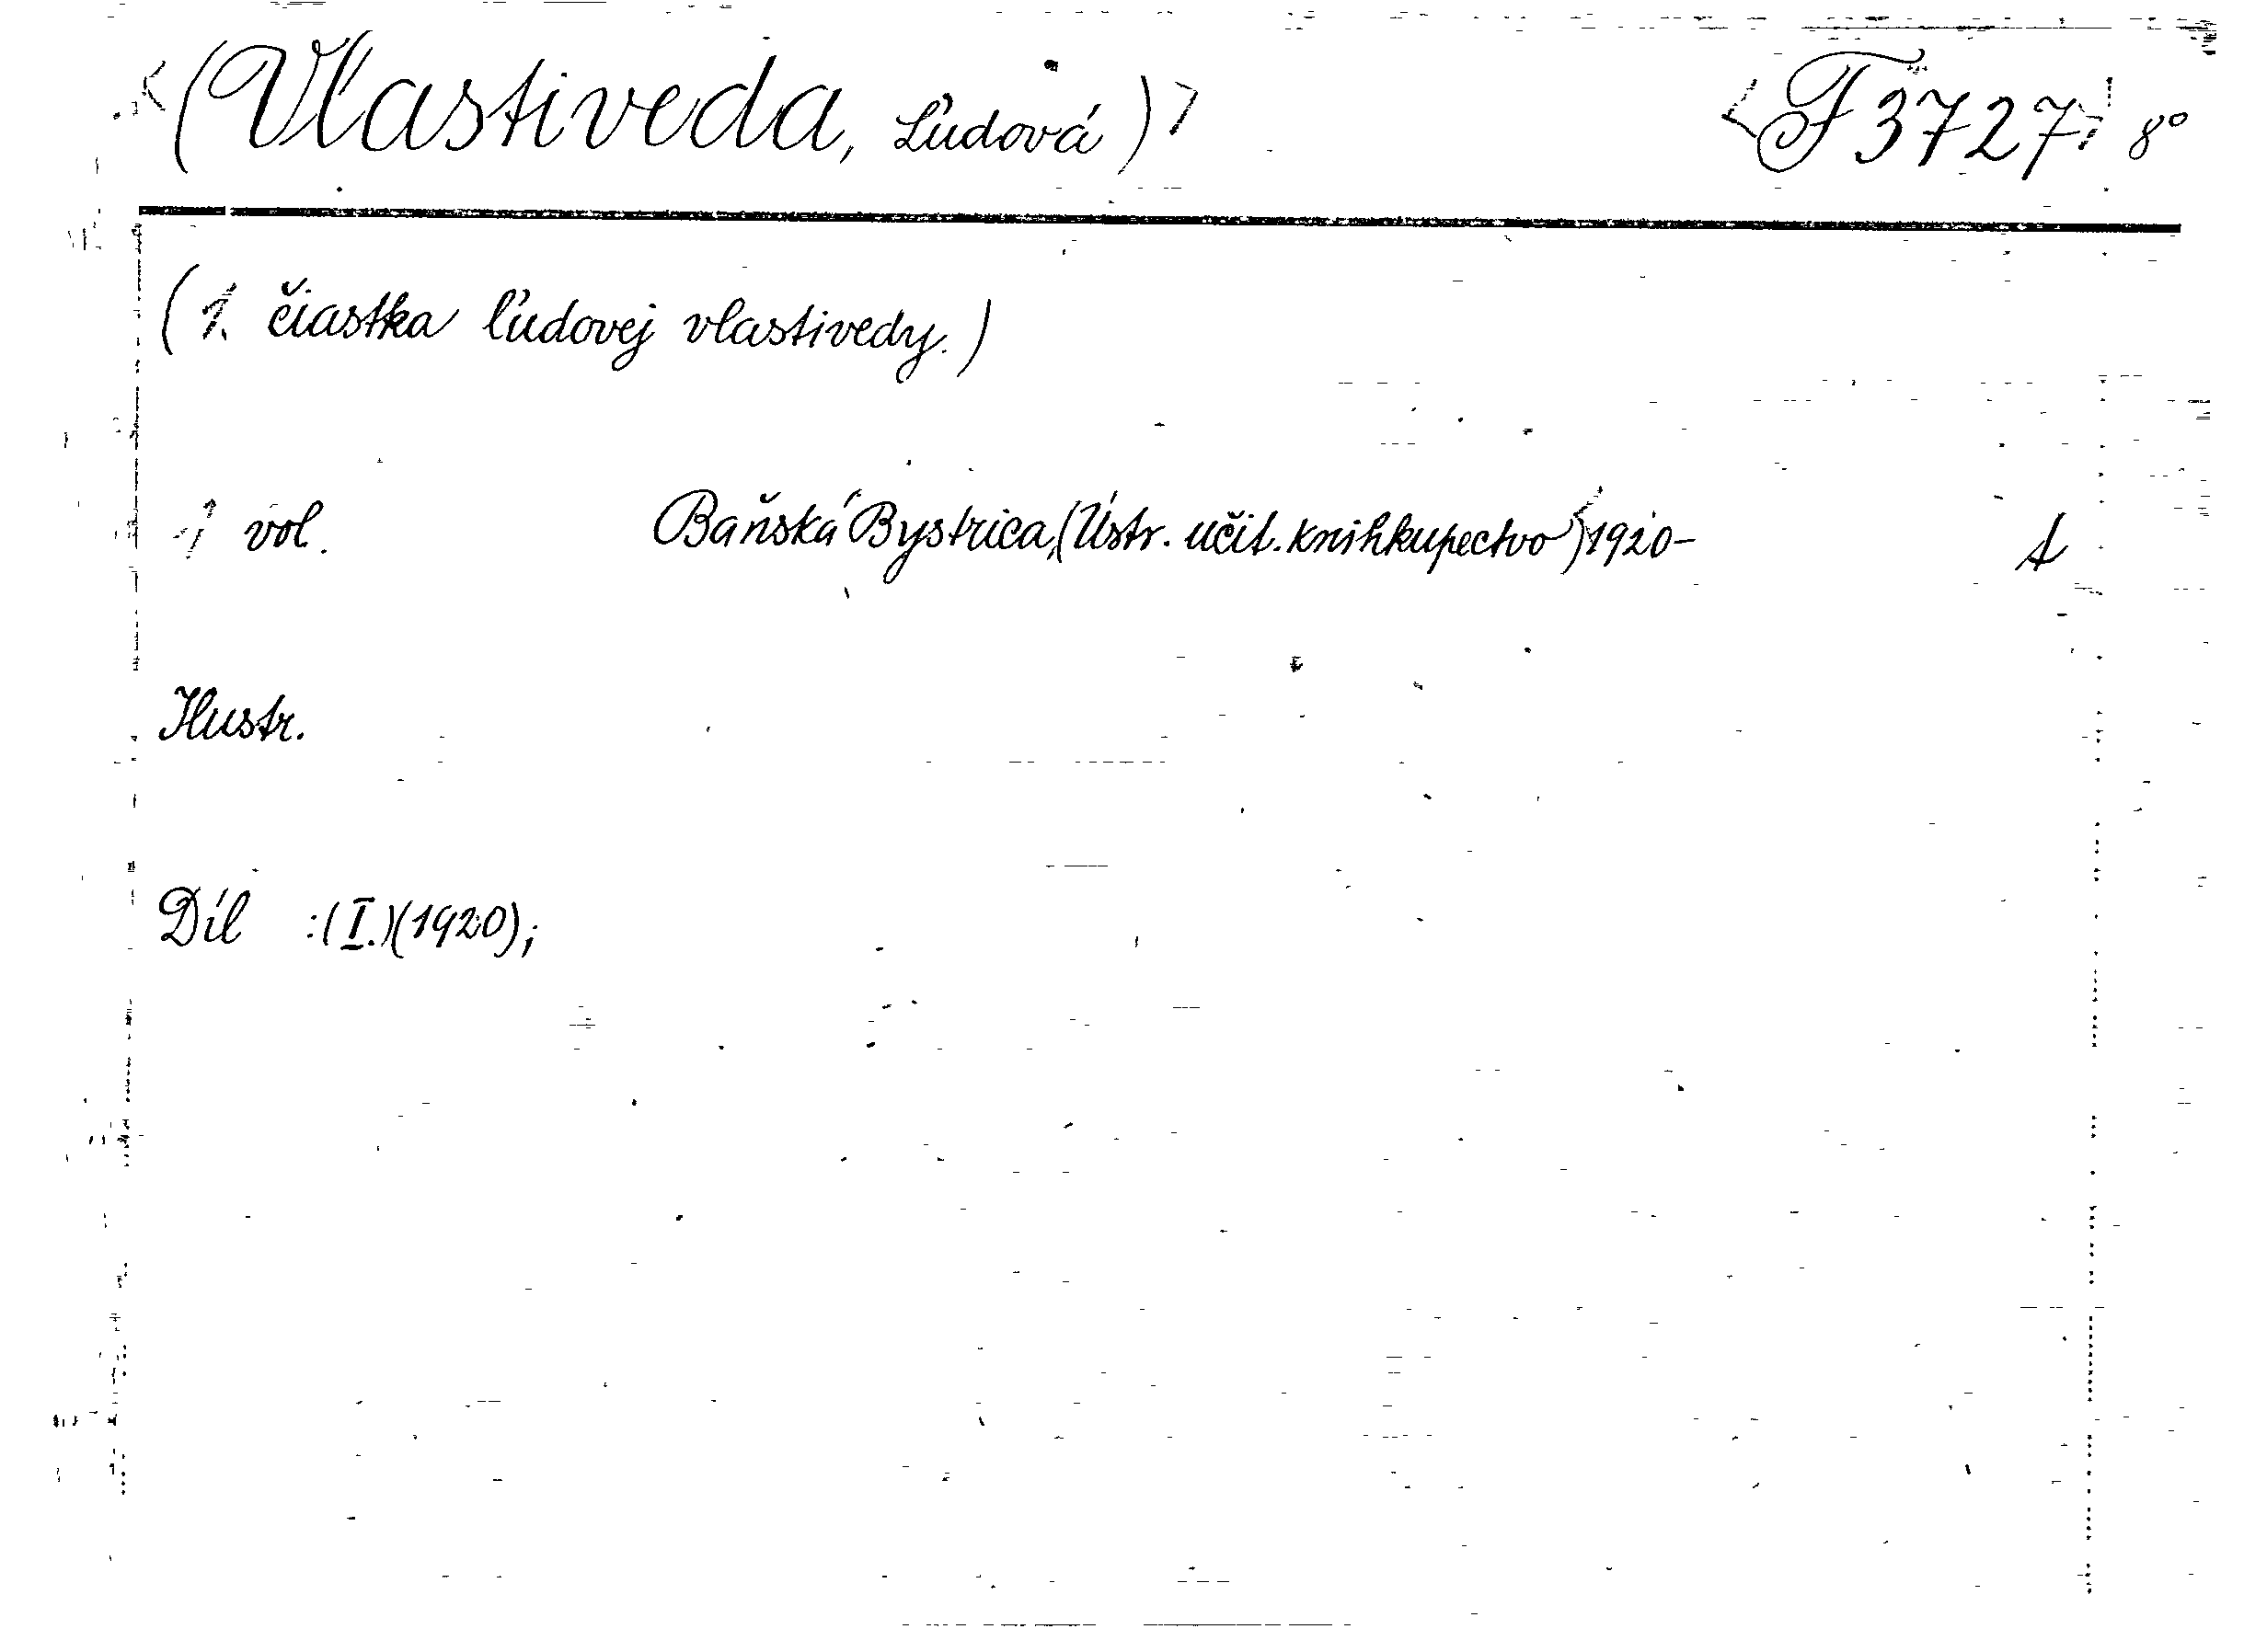 <(Vľastiveda, Ľudová)> <F 3727> 8°
(1. čiastka ľudovej vlastivedy.)
1 vol. Baňská Bystrica,(Ústr. učit. knihkupectvo) 1920-
Ilustr.
Díl :(I.)(1920);